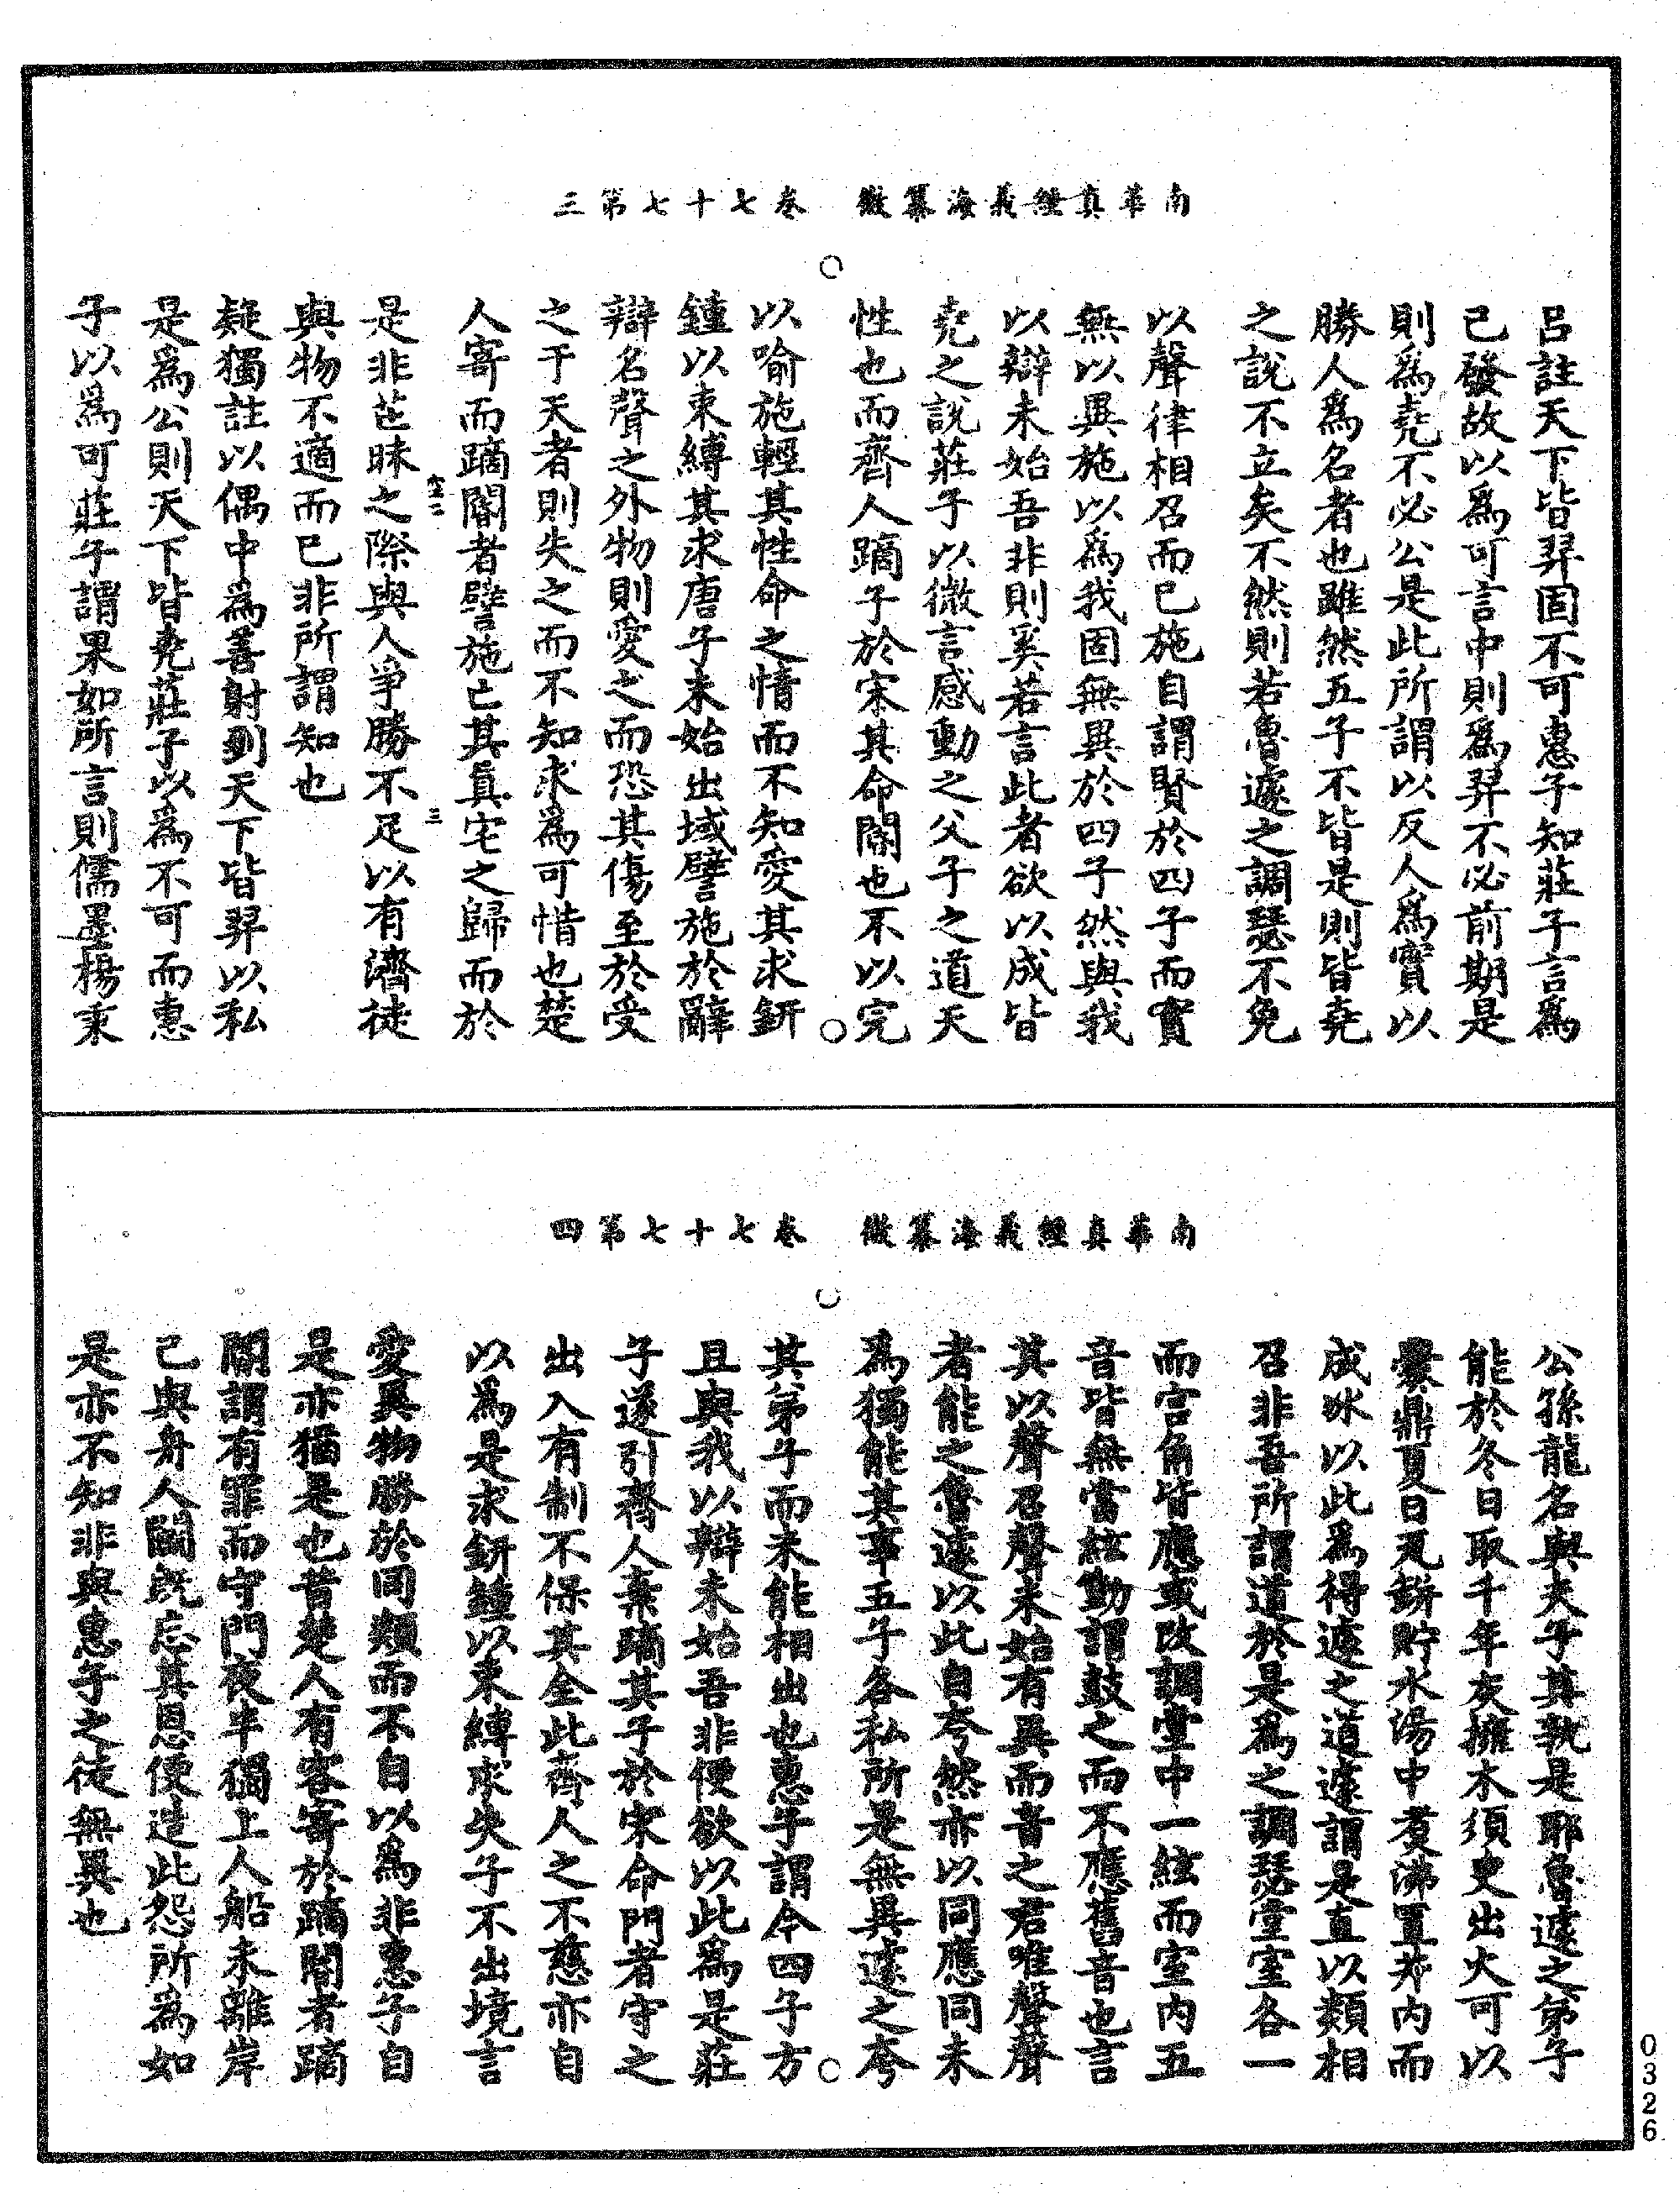 南華真經義海纂微　卷七十七第三
呂註天下皆羿固不可惠子知莊子言爲
已發故以爲可言中則爲羿不必前期是
則爲堯不必公是此所謂以反人爲實以
勝人爲名者也雖然五子不皆是則皆堯
之說不立矣不然則若魯遽之調瑟不免
以聲律相召而已施自謂賢於四子而實
無以異施以爲我固無異於四子然與我
以辯未始吾非則奚若言此者欲以成皆
堯之說莊子以微言感動之父子之道天
性也而齊人蹢子於宋其命閽也不以完
以喻施輕其性命之情而不知愛其求鈃
鍾以束縛其求唐子未始出域譬施於辭
辯名聲之外物則愛之而恐其傷至於受
之于天者則失之而不知求爲可惜也楚
人寄而蹢閽者譬施亡其真宅之歸而於
是非芒昧之際與人爭勝不足以有濟徒
與物不適而已非所謂知也
疑獨註以偶中爲善射則天下皆羿以私
是爲公則天下皆堯莊子以爲不可而惠
子以爲可莊子謂果如所言則儒墨楊秉
南華真經義海纂微　卷七十七第四
公孫龍名與夫子其孰是耶魯遽之弟子
能於冬日取千年灰擁木須臾出火可以
爨鼎夏日瓦缾貯水湯中煑沸置井内而
成冰以此爲得遽之道遽謂是直以類相
召非吾所謂道於是爲之調瑟堂室各一
而宫角皆應或改調堂中一絃而室内五
音皆無當絃動謂鼓之而不應舊音也言
其以聲召聲未始有異而音之君唯聲聲
者能之魯遽以此自夸然亦以同應同未
爲獨能其事五子各私所是無異遽之夸
其弟子而未能相出也惠子謂今四子方
且與我以辯未始吾非便欲以此爲是莊
子遂引齊人棄蹢其子於宋命門者守之
出入有制不保其全此齊人之不慈亦自
以爲是求鈃鍾以束縛求失子不出境言
愛異物勝於同類而不自以爲非惠子自
是亦猶是也昔楚人有客寄於蹢閽者蹢
閽謂有罪而守門夜半獨上人船未離岸
已與舟人鬭既忘其恩便造此怨所爲如
是亦不知非與惠子之徒無異也
0326